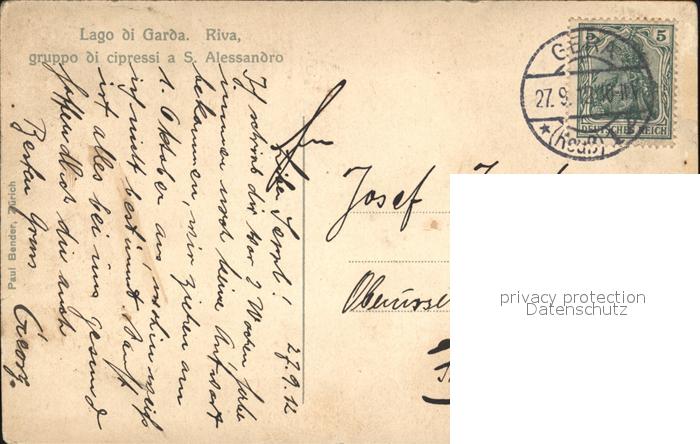 Lago di Garda. Riva,
gruppo di cipressi a S. Alessandro
GERA
27.9.
(Reuß)
5 5
DEUTSCHES REICH
Paul Bender, Zürich
27.9.12
Lieber Seppl!
Ich schrieb dir vor 2 Wochen habe
immer noch keine Antwort
bekommen, wir ziehen am
1. Oktober aus wohin weiß
ich nicht bestimmt. Sonst
ist alles bei uns gesund
hoffendlich du auch
Besten Gruss
Georg.
Josef
Oberursel
privacy protection
Datenschutz